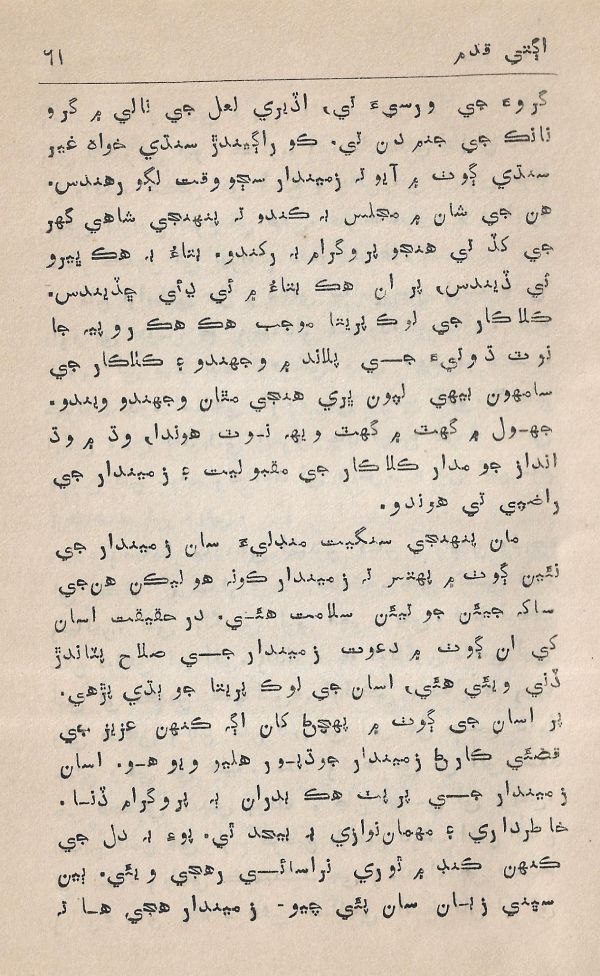 اڳتي قدم
٦١
گروءَ جي ورسيءَ تي، اڏيري لعل جي نالي ۾ گرو
نانڪ جي جنم دن تي. ڪو راڳيندڙ سنڌي خواه غير
سنڌي ڳوٺ ۾ آيو تہ زميندار سڄو وقت لڳو رهندس.
هن جي شان ۾ مجلس بہ ڪندو تہ پنهنجي شاهي گهر
جي کڏ تي هنجو پروگرام بہ رکندو. ڀتاءُ بہ هڪ ڀيرو
ئي ڏيندس، پر ان هڪ ڀتاءُ ۾ ئي ڍئي ڇڏيندس.
ڪلاڪار جي لوڪ پريتا موجب هڪ هڪ روپيہ جا
نوٽ ڌوتيءَ جي پلاند ۾ وجهندو ۽ ڪلاڪار جي
سامهون بيهي لپون ڀري هنجي مٿان وجهندو ويندو.
جهول ۾ گهٽ ۾ گهٽ ويهہ نوٽ هوندا، وڌ ۾ وڌ
انداز جو مدار ڪلاڪار جي مقبوليت ۽ زميندار جي
راضپي تي هوندو.
مان پنهنجي سنگيت منڊليءَ سان زميندار جي
نئين ڳوٺ ۾ پهتس تہ زميندار ڪونہ هو ليڪن هن‌جي
ساک جيئن جو تيئن سلامت هئي. درحقيقت اسان
کي ان ڳوٺ ۾ دعوت زميندار جي صلاح پٽاندڙ
ڏني ويئي هئي، اسان جي لوڪ پريتا جو ٻڌي پڙهي.
پر اسان جي ڳوٺ ۾ پهچڻ کان اڳ ڪنهن عزيز جي
قضئي ڪارڻ زميندار جوڌپور هليو ويو هو. اسان
زميندار جي پرپٺ هڪ ٻدران ٻہ پروگرام ڏنا.
خاطرداري ۽ مهمان‌نوازي بہ بيحد ٿي. پوءِ بہ دل جي
ڪنهن ڪنڊ ۾ ٿوري نراسائي رهجي ويئي. ٻين
سڀني زبان سان پئي چيو- زميندار هجي ها تہ